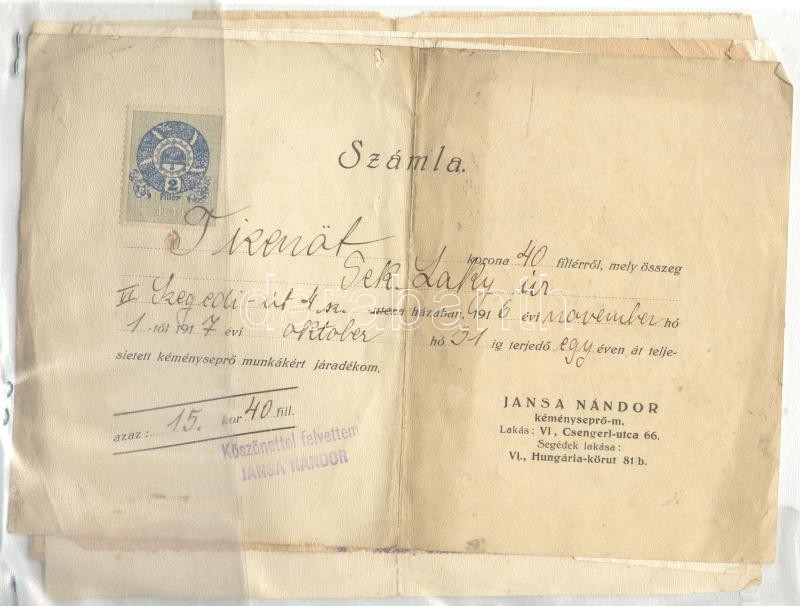 Számla.
2
fillér
Tizenöt korona 40 fillérről, mely összeg
Tek. Laky úr
VI Szegedi-út 4 sz. utcza házában, 1916 évi november hó
1-től 1917 évi október hó 31 ig terjedő egy éven át telje-
sietett kéményseprő munkákért járadékom.
azaz: 15. kor 40 fill.
Köszönettel felvettem
JANSA NÁNDOR
JANSA NÁNDOR
kéményseprő-m.
Lakás: VI, Csengeri-utca 66.
Segédek lakása:
VI., Hungária-körut 81/b.
darabanth